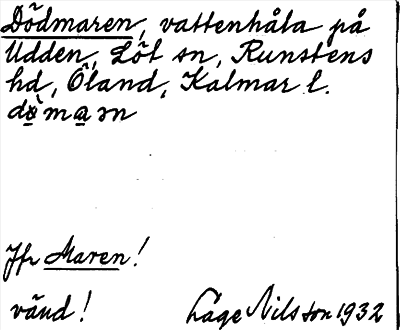 Dödmaren, vattenhåla på
Udden, Löt sn, Runstens
hd, Öland, Kalmar l.
dø̀maən
Jfr Maren!
vänd! Låge Nilsson 1932